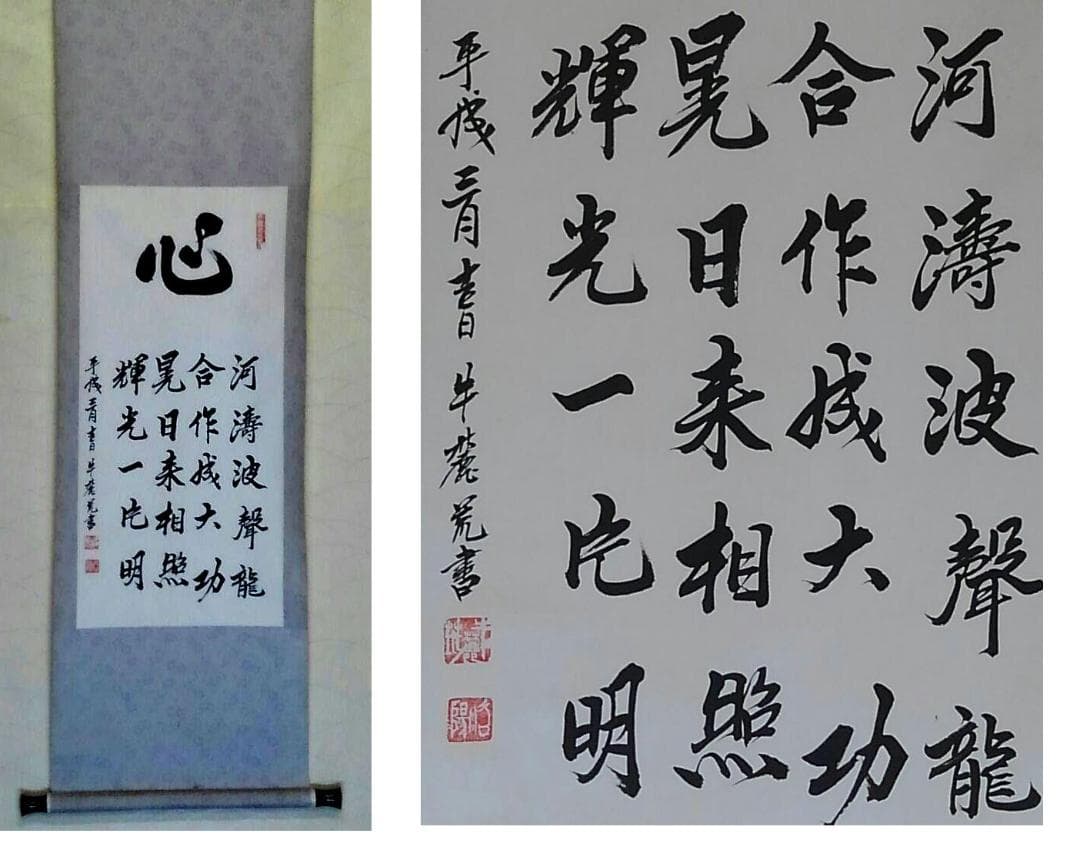 心
河濤波聲龍
合作成大功
晃日来相照
輝光一片明
平成三月吉日 牛麓荒書
河濤波聲龍
合作成大功
晃日来相照
輝光一片明
平成三月吉日 牛麓荒書